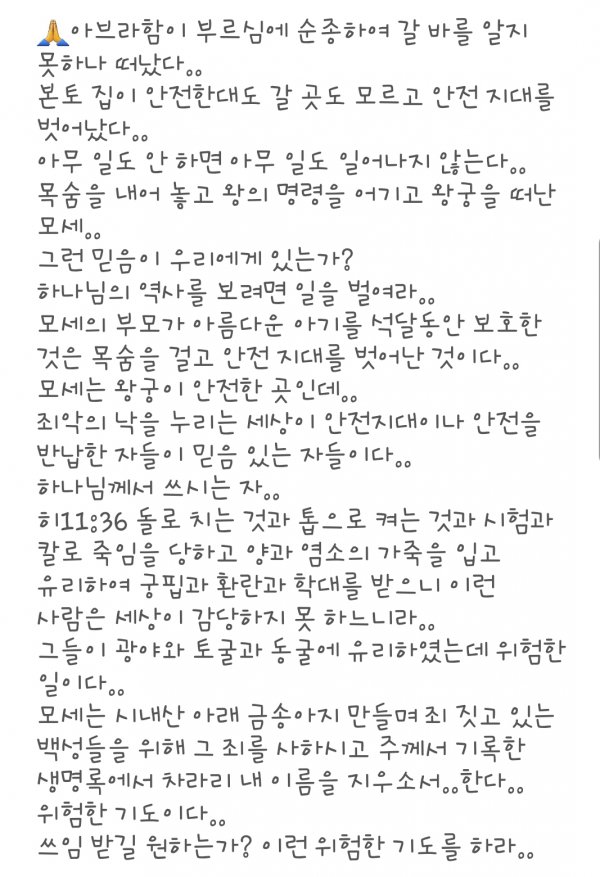 🙏아브라함이 부르심에 순종하여 갈 바를 알지
못하나 떠났다..
본토 집이 안전한대도 갈 곳도 모르고 안전 지대를
벗어났다..
아무 일도 안 하면 아무 일도 일어나지 않는다..
목숨을 내어 놓고 왕의 명령을 어기고 왕궁을 떠난
모세..
그런 믿음이 우리에게 있는가?
하나님의 역사를 보려면 일을 벌여라..
모세의 부모가 아름다운 아기를 석달동안 보호한
것은 목숨을 걸고 안전 지대를 벗어난 것이다..
모세는 왕궁이 안전한 곳인데..
죄악의 낙을 누리는 세상이 안전지대이나 안전을
반납한 자들이 믿음 있는 자들이다..
하나님께서 쓰시는 자..
히11:36 돌로 치는 것과 톱으로 켜는 것과 시험과
칼로 죽임을 당하고 양과 염소의 가죽을 입고
유리하여 궁핍과 환란과 학대를 받으니 이런
사람은 세상이 감당하지 못 하느니라..
그들이 광야와 토굴과 동굴에 유리하였는데 위험한
일이다..
모세는 시내산 아래 금송아지 만들며 죄 짓고 있는
백성들을 위해 그 죄를 사하시고 주께서 기록한
생명록에서 차라리 내 이름을 지우소서..한다..
위험한 기도이다..
쓰임 받길 원하는가? 이런 위험한 기도를 하라..